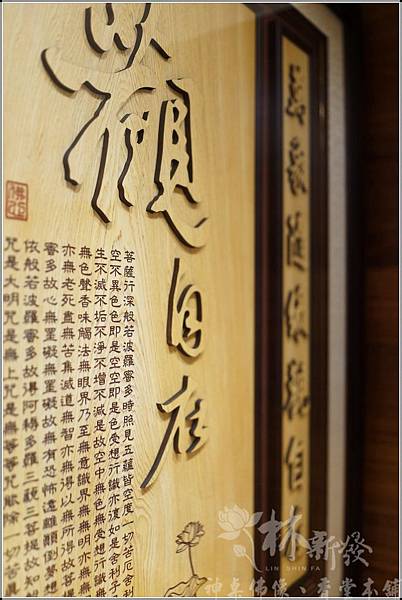 觀自在
菩薩行深般若波羅蜜多時照見五蘊皆空度一切苦厄舍利
空不異色色即是空空即是色受想行識亦復如是舍利子
生不滅不垢不淨不增不減是故空中無色無受想行識無
無色聲香味觸法無眼界乃至無意識界無無明亦無無
亦無老死盡無苦集滅道無智亦無得以無所得故菩提
蜜多故心無罣礙無罣礙故無有恐怖遠離顛倒夢想
依般若波羅蜜多故得阿耨多羅三藐三菩提故知般
咒是大明咒是無上咒是無等等咒能除一切苦
佛心
林新發
LIN SHIN FA
神桌佛像、齊堂本舖